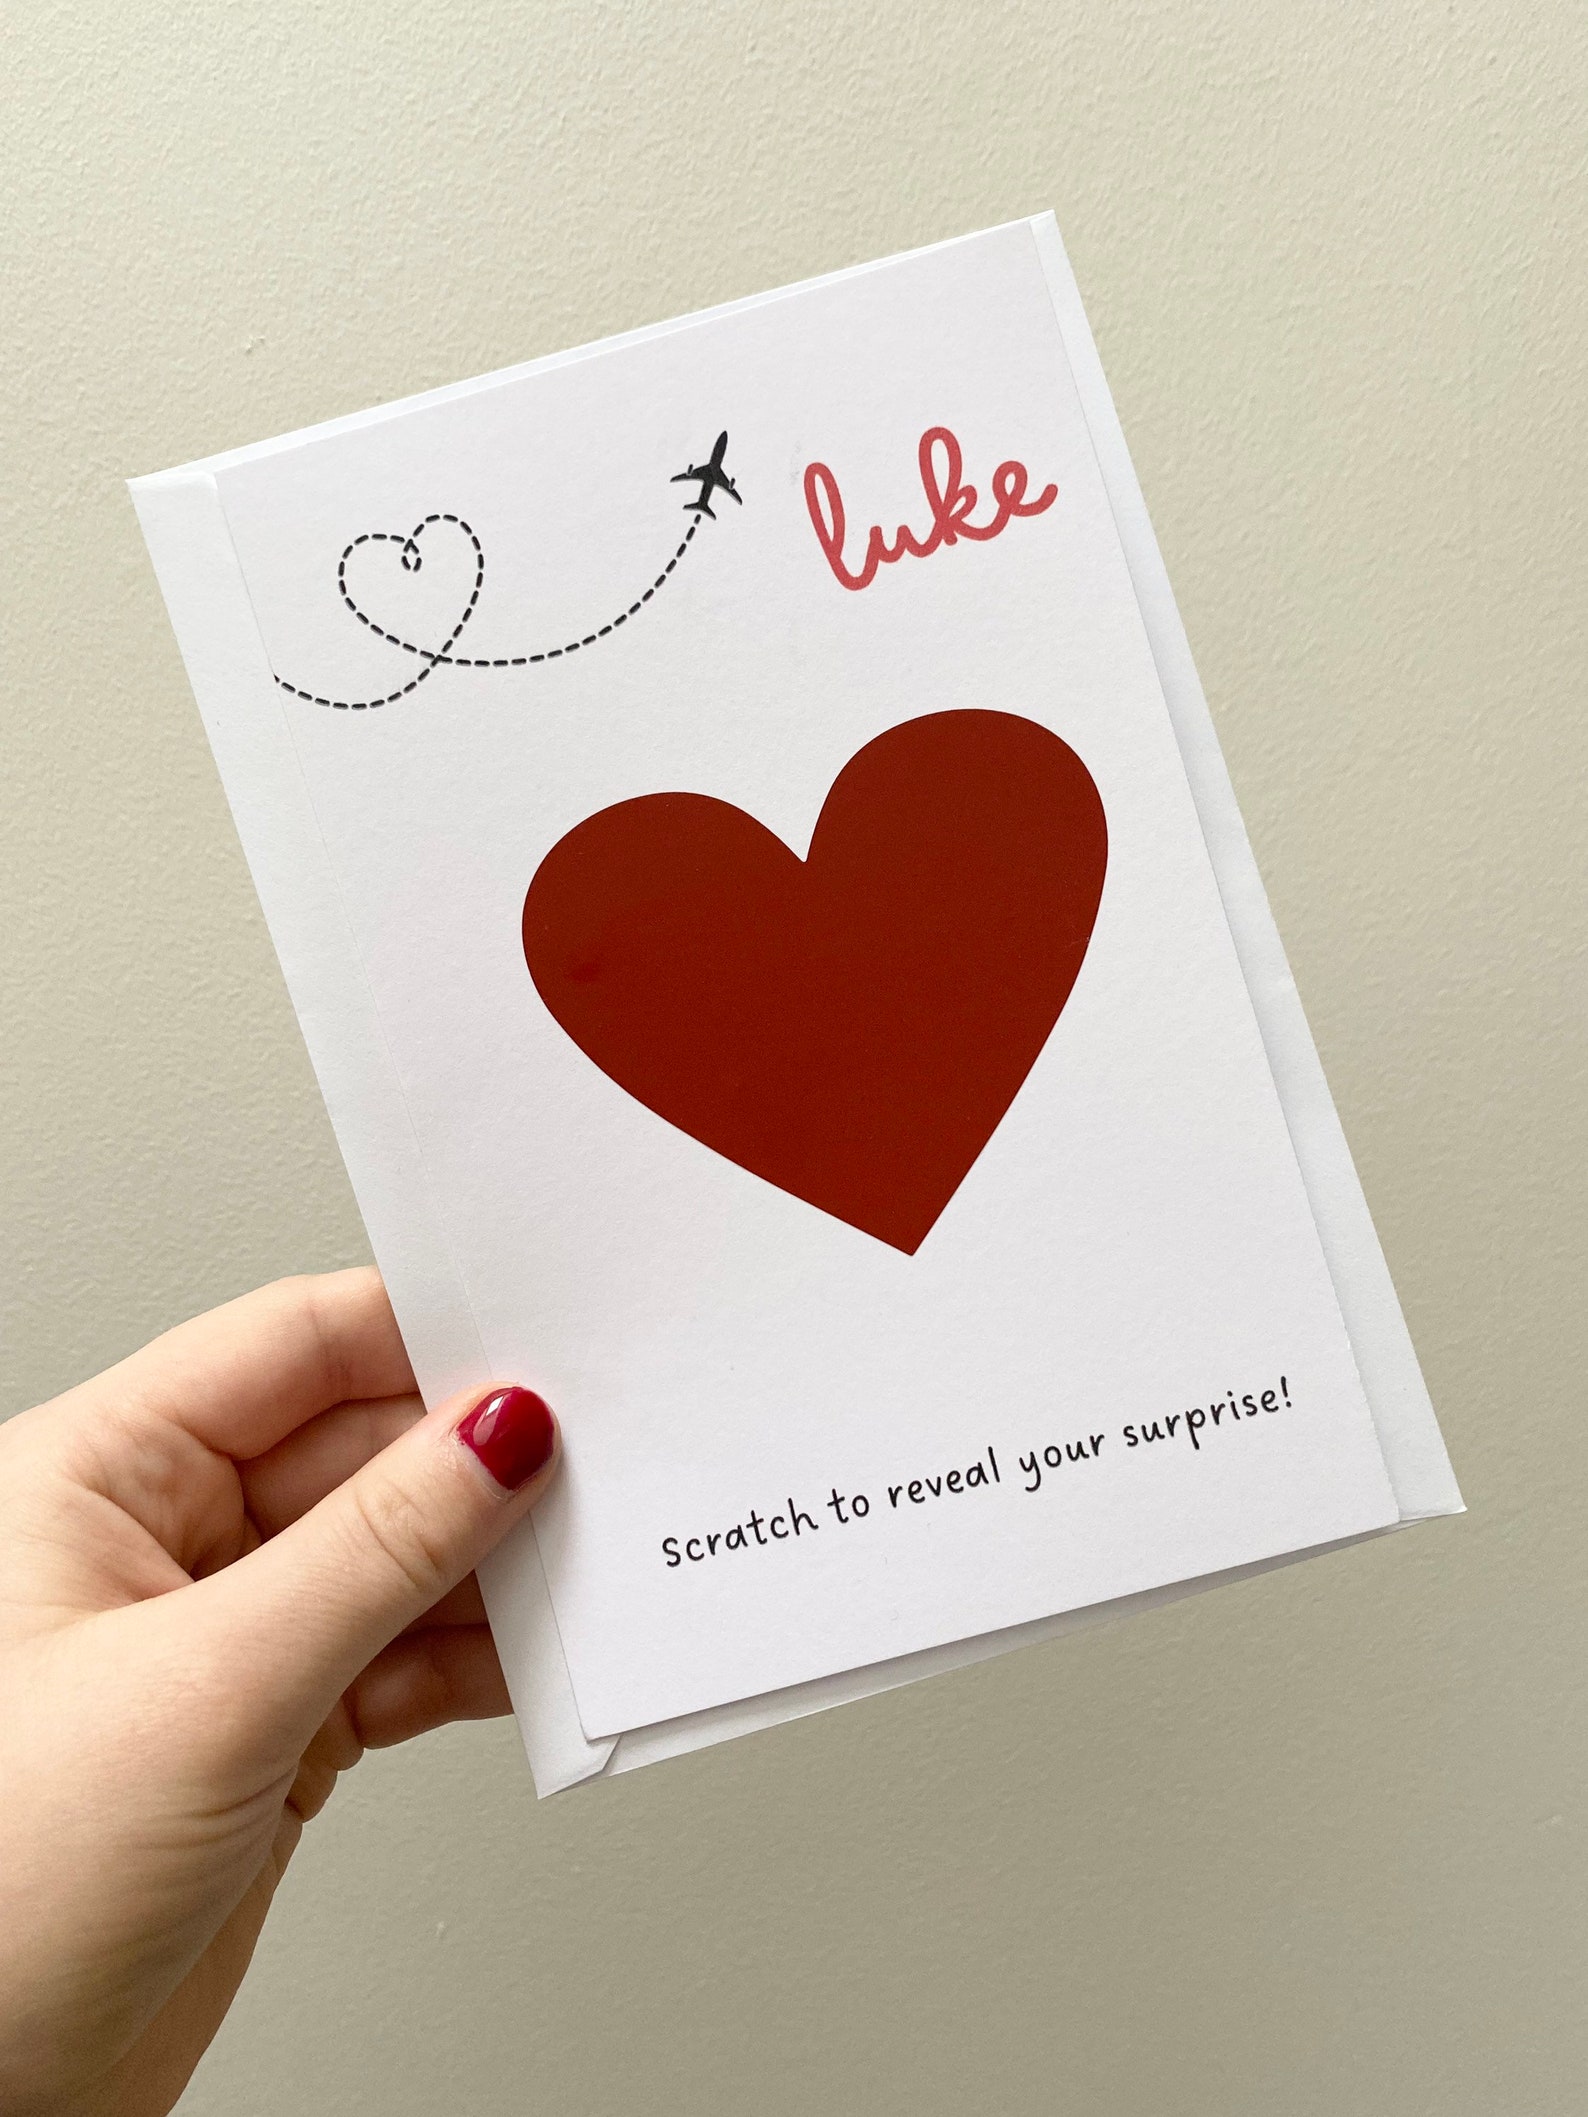 luke
Scratch to reveal your surprise!